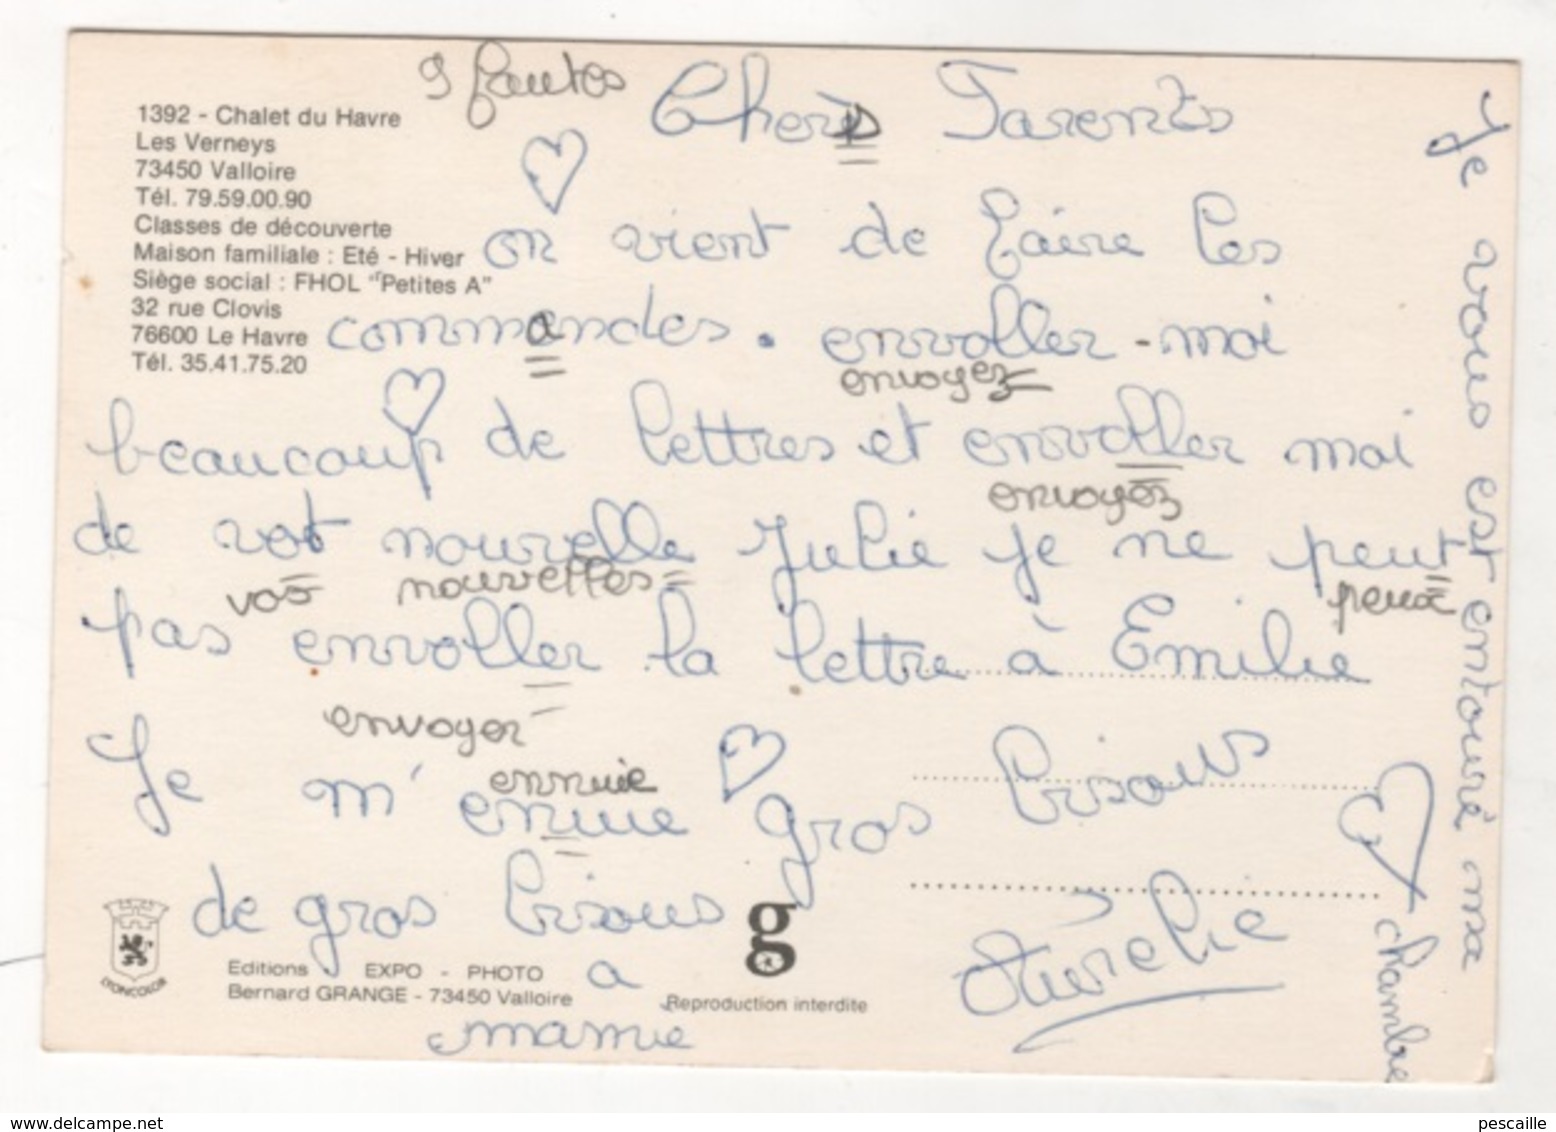 9 fautes
1392 - Chalet du Havre
Les Verneys
73450 Valloire
Tél. 79.59.00.90
Classes de découverte
Maison familiale : Eté - Hiver
Siège social : FHOL "Petites A"
32 rue Clovis
76600 Le Havre
Tél. 35.41.75.20
Chers Parents
on vient de faire les
commandes. envoller-moi
envoyez
beaucoup de lettres et envoller moi
envoyez
de vot nouvelle Julie je ne peut
vos nouvelles peux
pas envoller la lettre à Emilie
envoyer
ennuie
Je m'ennue gros bisous
de gros bisous
a
mamie
Aurelie
Je vous est entouré ma
chambre
LYONCOLOR
Editions EXPO - PHOTO
Bernard GRANGE - 73450 Valloire
g
Reproduction interdite
delcampe.net
pescaille